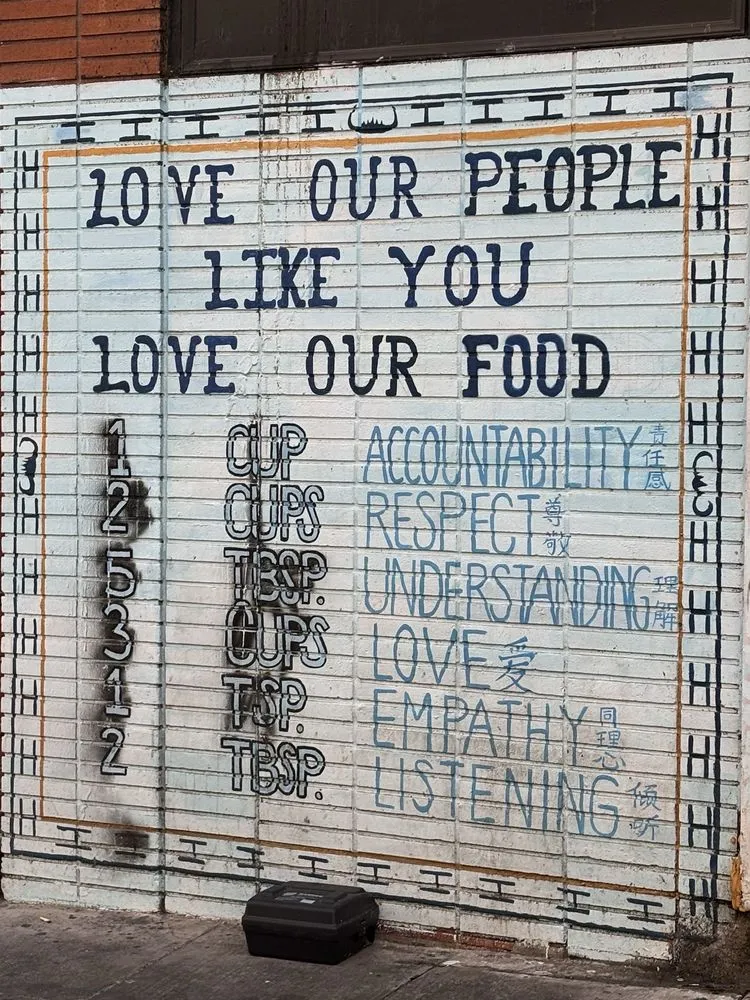 LOVE OUR PEOPLE
LIKE YOU
LOVE OUR FOOD
1 CUP ACCOUNTABILITY 責任感
2 CUPS RESPECT 尊敬
5 TBSP. UNDERSTANDING 理解
3 CUPS LOVE 爱
1 TSP. EMPATHY 同理心
2 TBSP. LISTENING 倾听